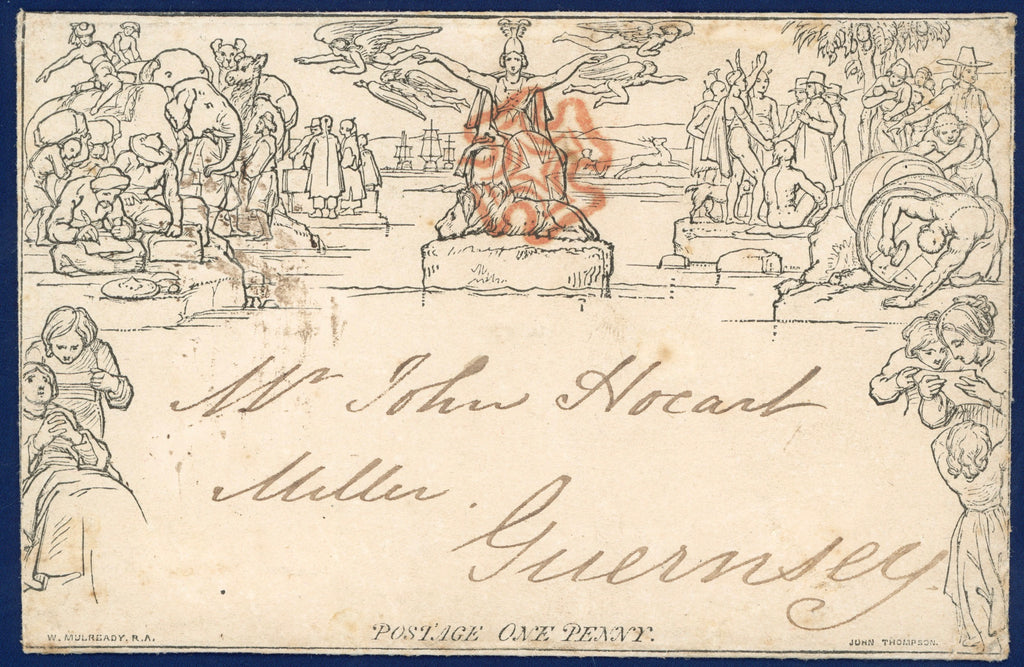 Mr John Hocart
Miller.
Guernsey
W. MULREADY, R.A.
POSTAGE ONE PENNY.
JOHN THOMPSON.